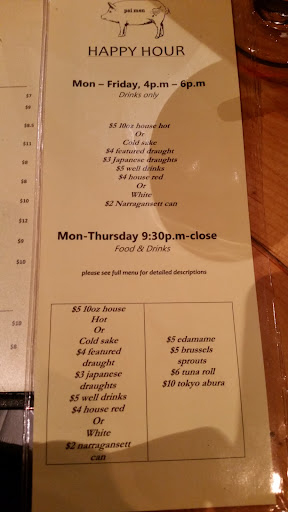 pai men
HAPPY HOUR
Mon – Friday, 4p.m – 6p.m
Drinks only
$5 10oz house hot
Or
Cold sake
$4 featured draught
$3 Japanese draughts
$5 well drinks
$4 house red
Or
White
$2 Narragansett can
Mon-Thursday 9:30p.m-close
Food & Drinks
please see full menu for detailed descriptions
$5 10oz house
Hot
Or
Cold sake
$4 featured
draught
$3 japanese
draughts
$5 well drinks
$4 house red
Or
White
$2 narragansett
can
$5 edamame
$5 brussels
sprouts
$6 tuna roll
$10 tokyo abura